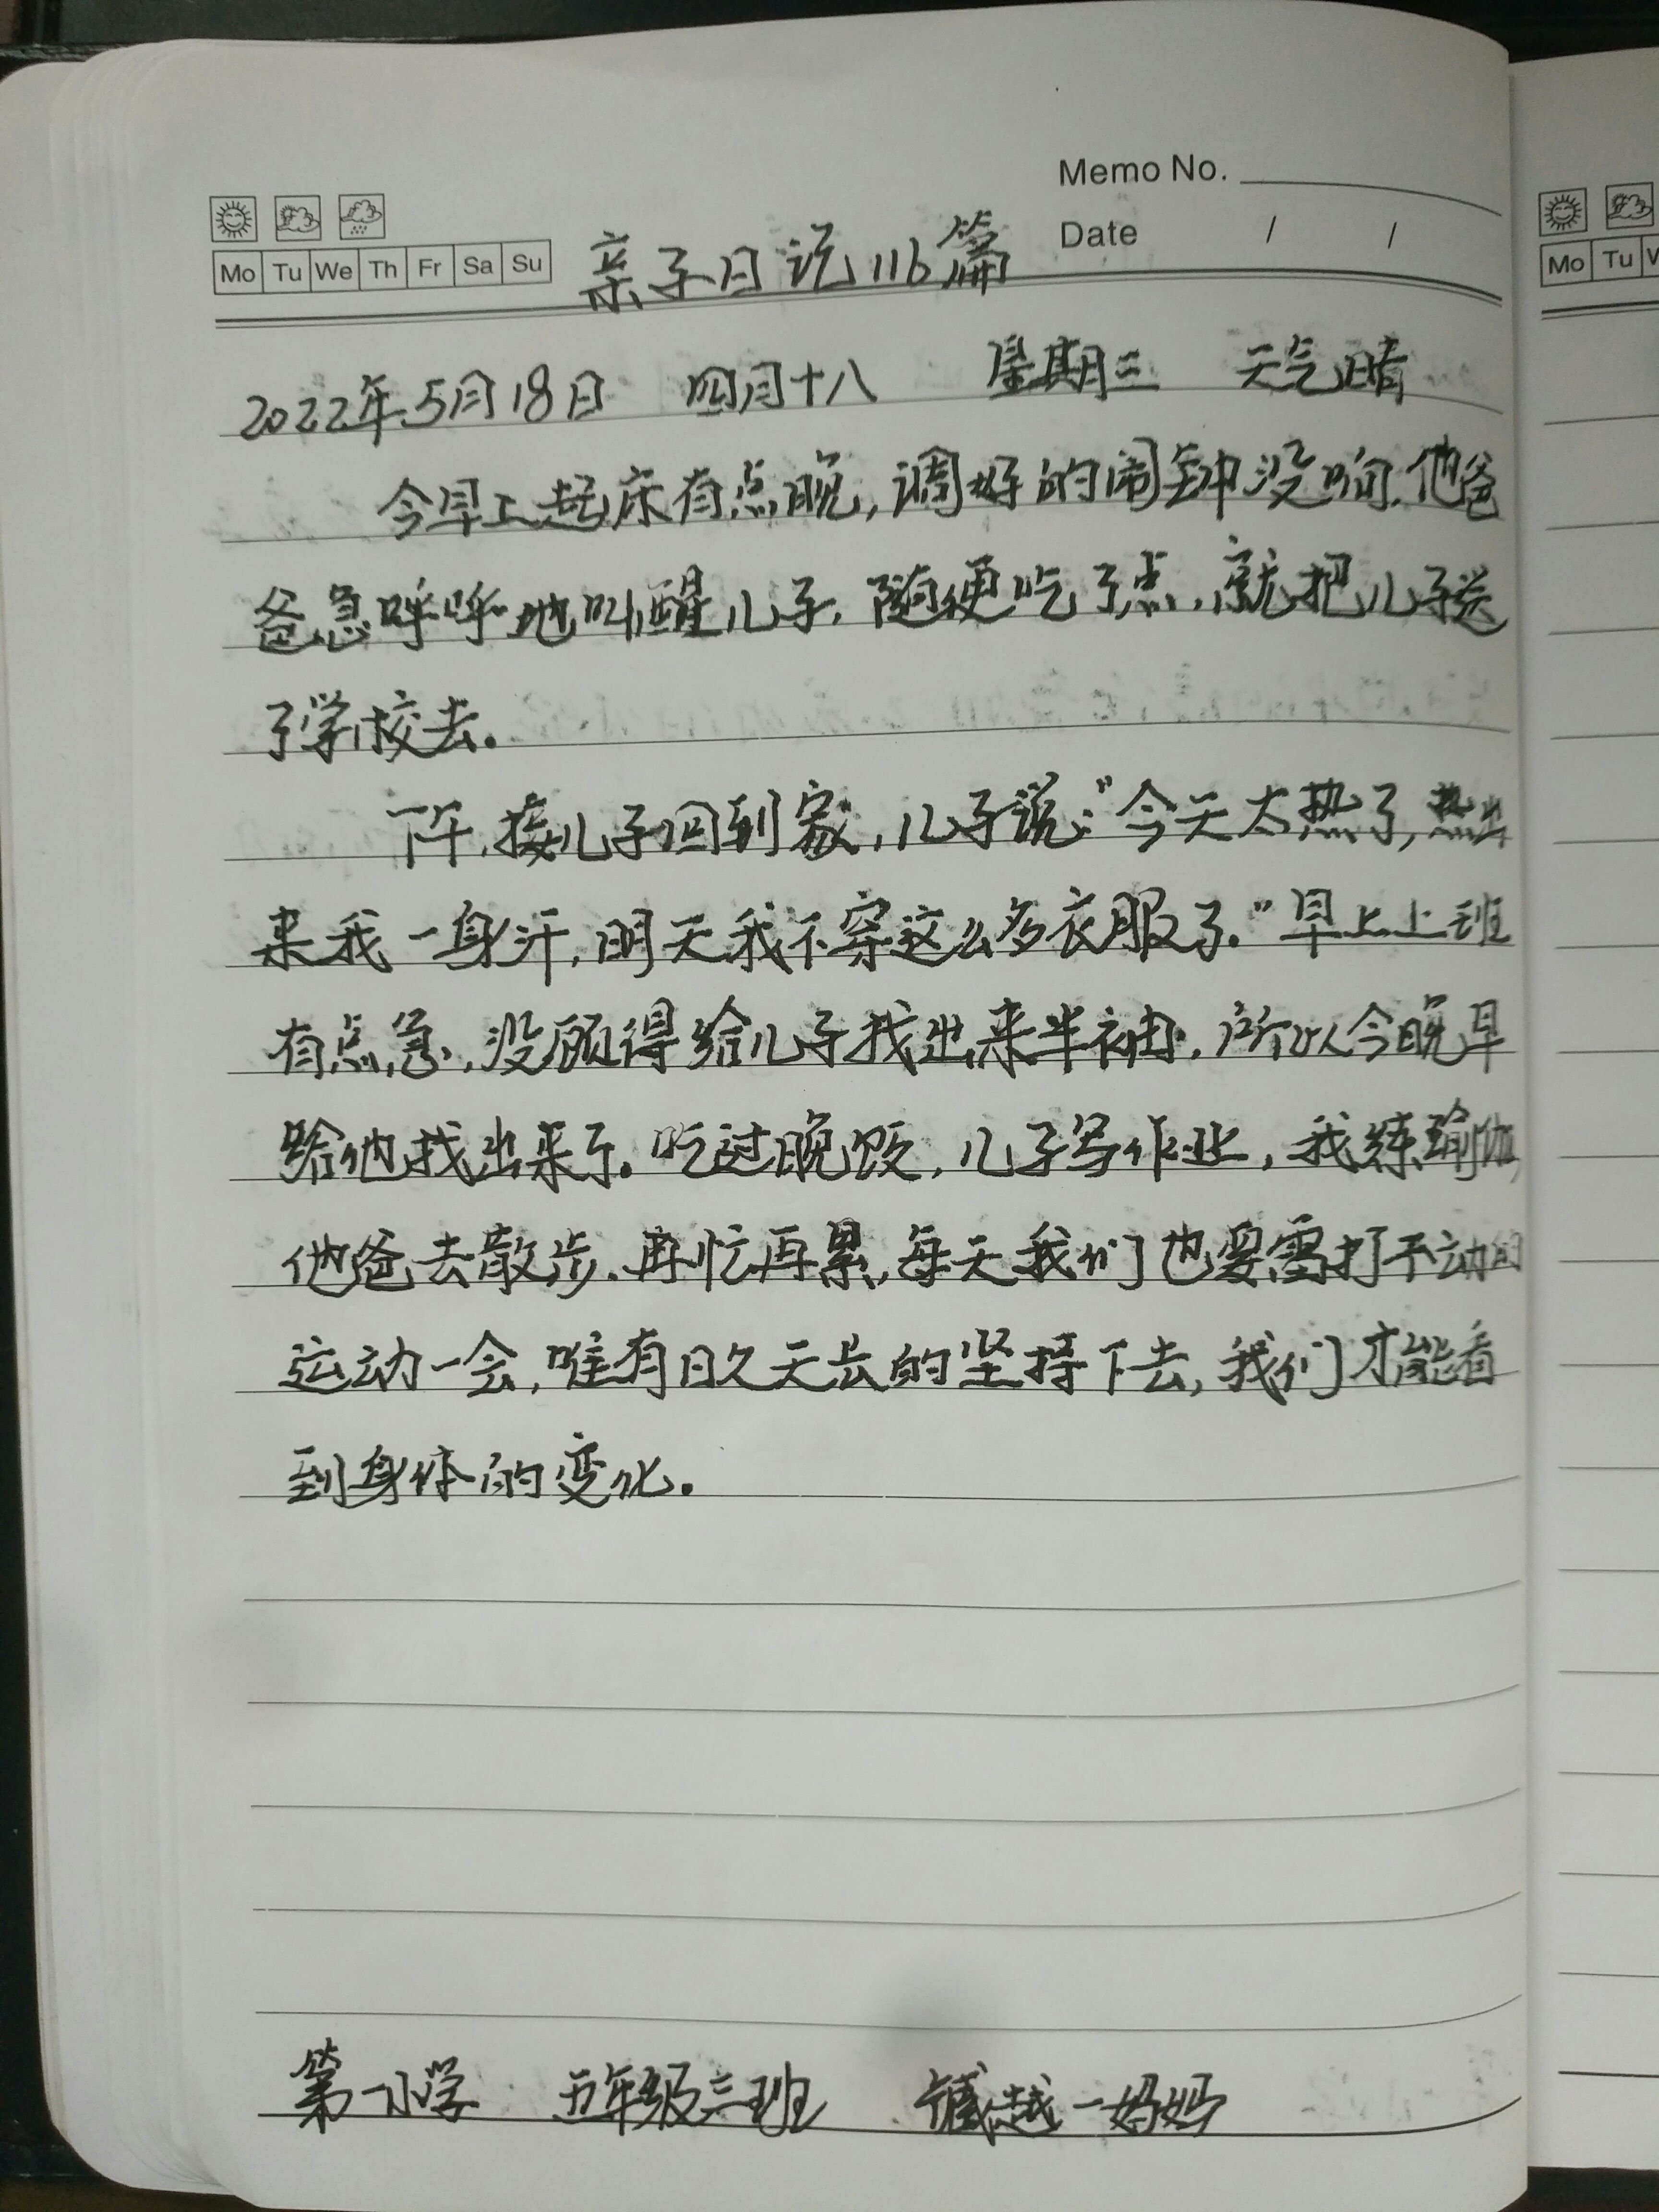 Memo No.
Mo Tu We Th Fr Sa Su
Date / /
亲子日记116篇
2022年5月18日 四月十八 星期三 天气晴
今早上起床有点晚,调好的闹钟没响,他爸
爸急呼呼地叫醒儿子,随便吃了点,就把儿子送
了学校去.
下午,接儿子回到家,儿子说:"今天太热了,热出
来我一身汗,明天我不穿这么多衣服了."早上上班
有点急,没顾得给儿子找出来半袖,所以今晚早
给他找出来了.吃过晚饭,儿子写作业,我练瑜伽,
他爸去散步.再忙再累,每天我们也要雷打不动的
运动一会,唯有日久天长的坚持下去,我们才能看
到身体的变化.
第一小学 五年级三班 臧越一妈妈
Mo Tu